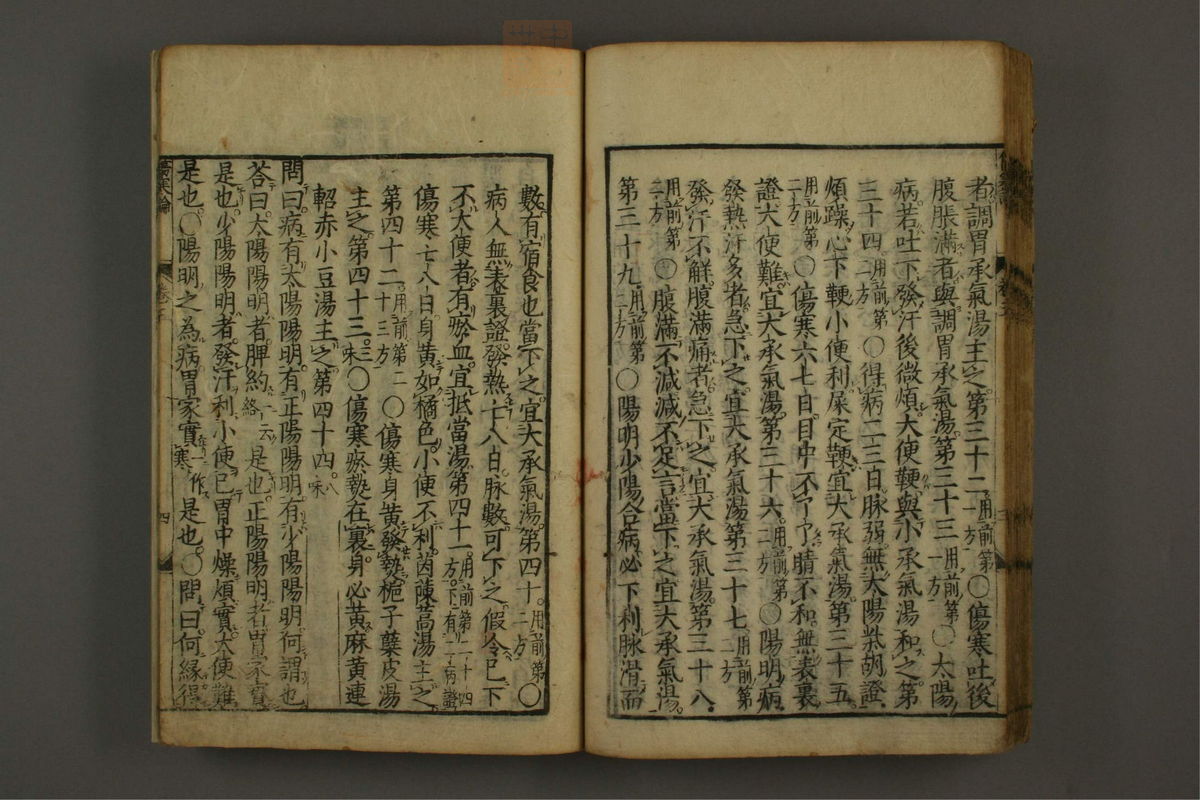 者調胃承氣湯主之第三十二用前第一方○傷寒吐後
腹脹滿者與調胃承氣湯第三十三用前第一方○太陽
病若吐下發汗後微煩大便鞕與小承氣湯和之第
三十四用前第二方○得病二三日脉弱無太陽柴胡證
煩躁心下鞕小便利屎定鞕宜大承氣湯第三十五
用前第二方○傷寒六七日目中不了了睛不和無表裏
證大便難宜大承氣湯第三十六用前第二方○陽明病
發熱汗多者急下之宜大承氣湯第三十七用前第二方
發汗不解腹滿痛者急下之宜大承氣湯第三十八
用前第二方○腹滿不減減不足言當下之宜大承氣湯
第三十九用前第二方○陽明少陽合病必下利脉滑而
數有宿食也當下之宜大承氣湯第四十用前第二方○
病人無表裏證發熱七八日脉數可下之假令已下
不大便者有瘀血宜抵當湯第四十一用前第二十四方下有二病證
傷寒七八日身黃如橘色小便不利茵蔯蒿湯主之
第四十二用前第二十三方○傷寒身黃發熱梔子蘗皮湯
主之第四十三三味○傷寒瘀熱在裏身必黃麻黃連
軺赤小豆湯主之第四十四八味
問曰病有太陽陽明有正陽陽明有少陽陽明何謂也
荅曰太陽陽明者脾約一云絡是也正陽陽明者胃家實
是也少陽陽明者發汗利小便已胃中燥煩實大便難
是也○陽明之為病胃家實一作寒是也○問曰何緣得
傷寒論
四